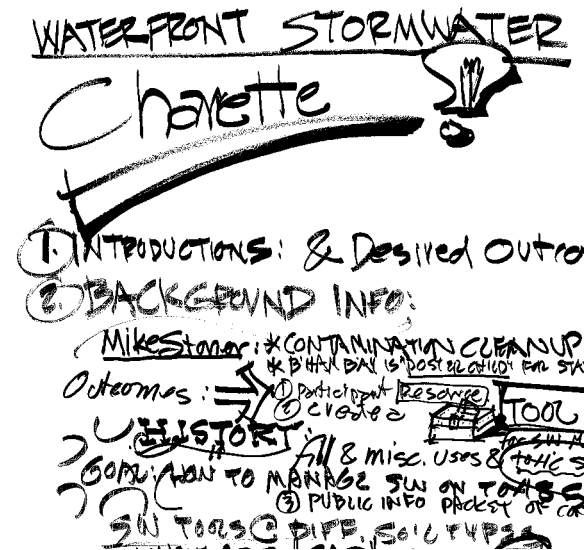 WATERFRONT STORMWATER
Charette
1. INTRODUCTIONS: & Desired Outco
2. BACKGROUND INFO:
Mike Stoner: * CONTAMINATION CLEANUP
* B'HAM BAY IS "POSTER CHILD" FOR STA
Outcomes: ① Participant Resource
② Create a TOOL
HISTORY: for SW M
fill & misc. uses & toxic S
GOAL: HOW TO MANAGE SW ON TOXIC S
③ PUBLIC INFO PACKET OF CO
SW TOOLS @ DIFF. SOIL TYPES